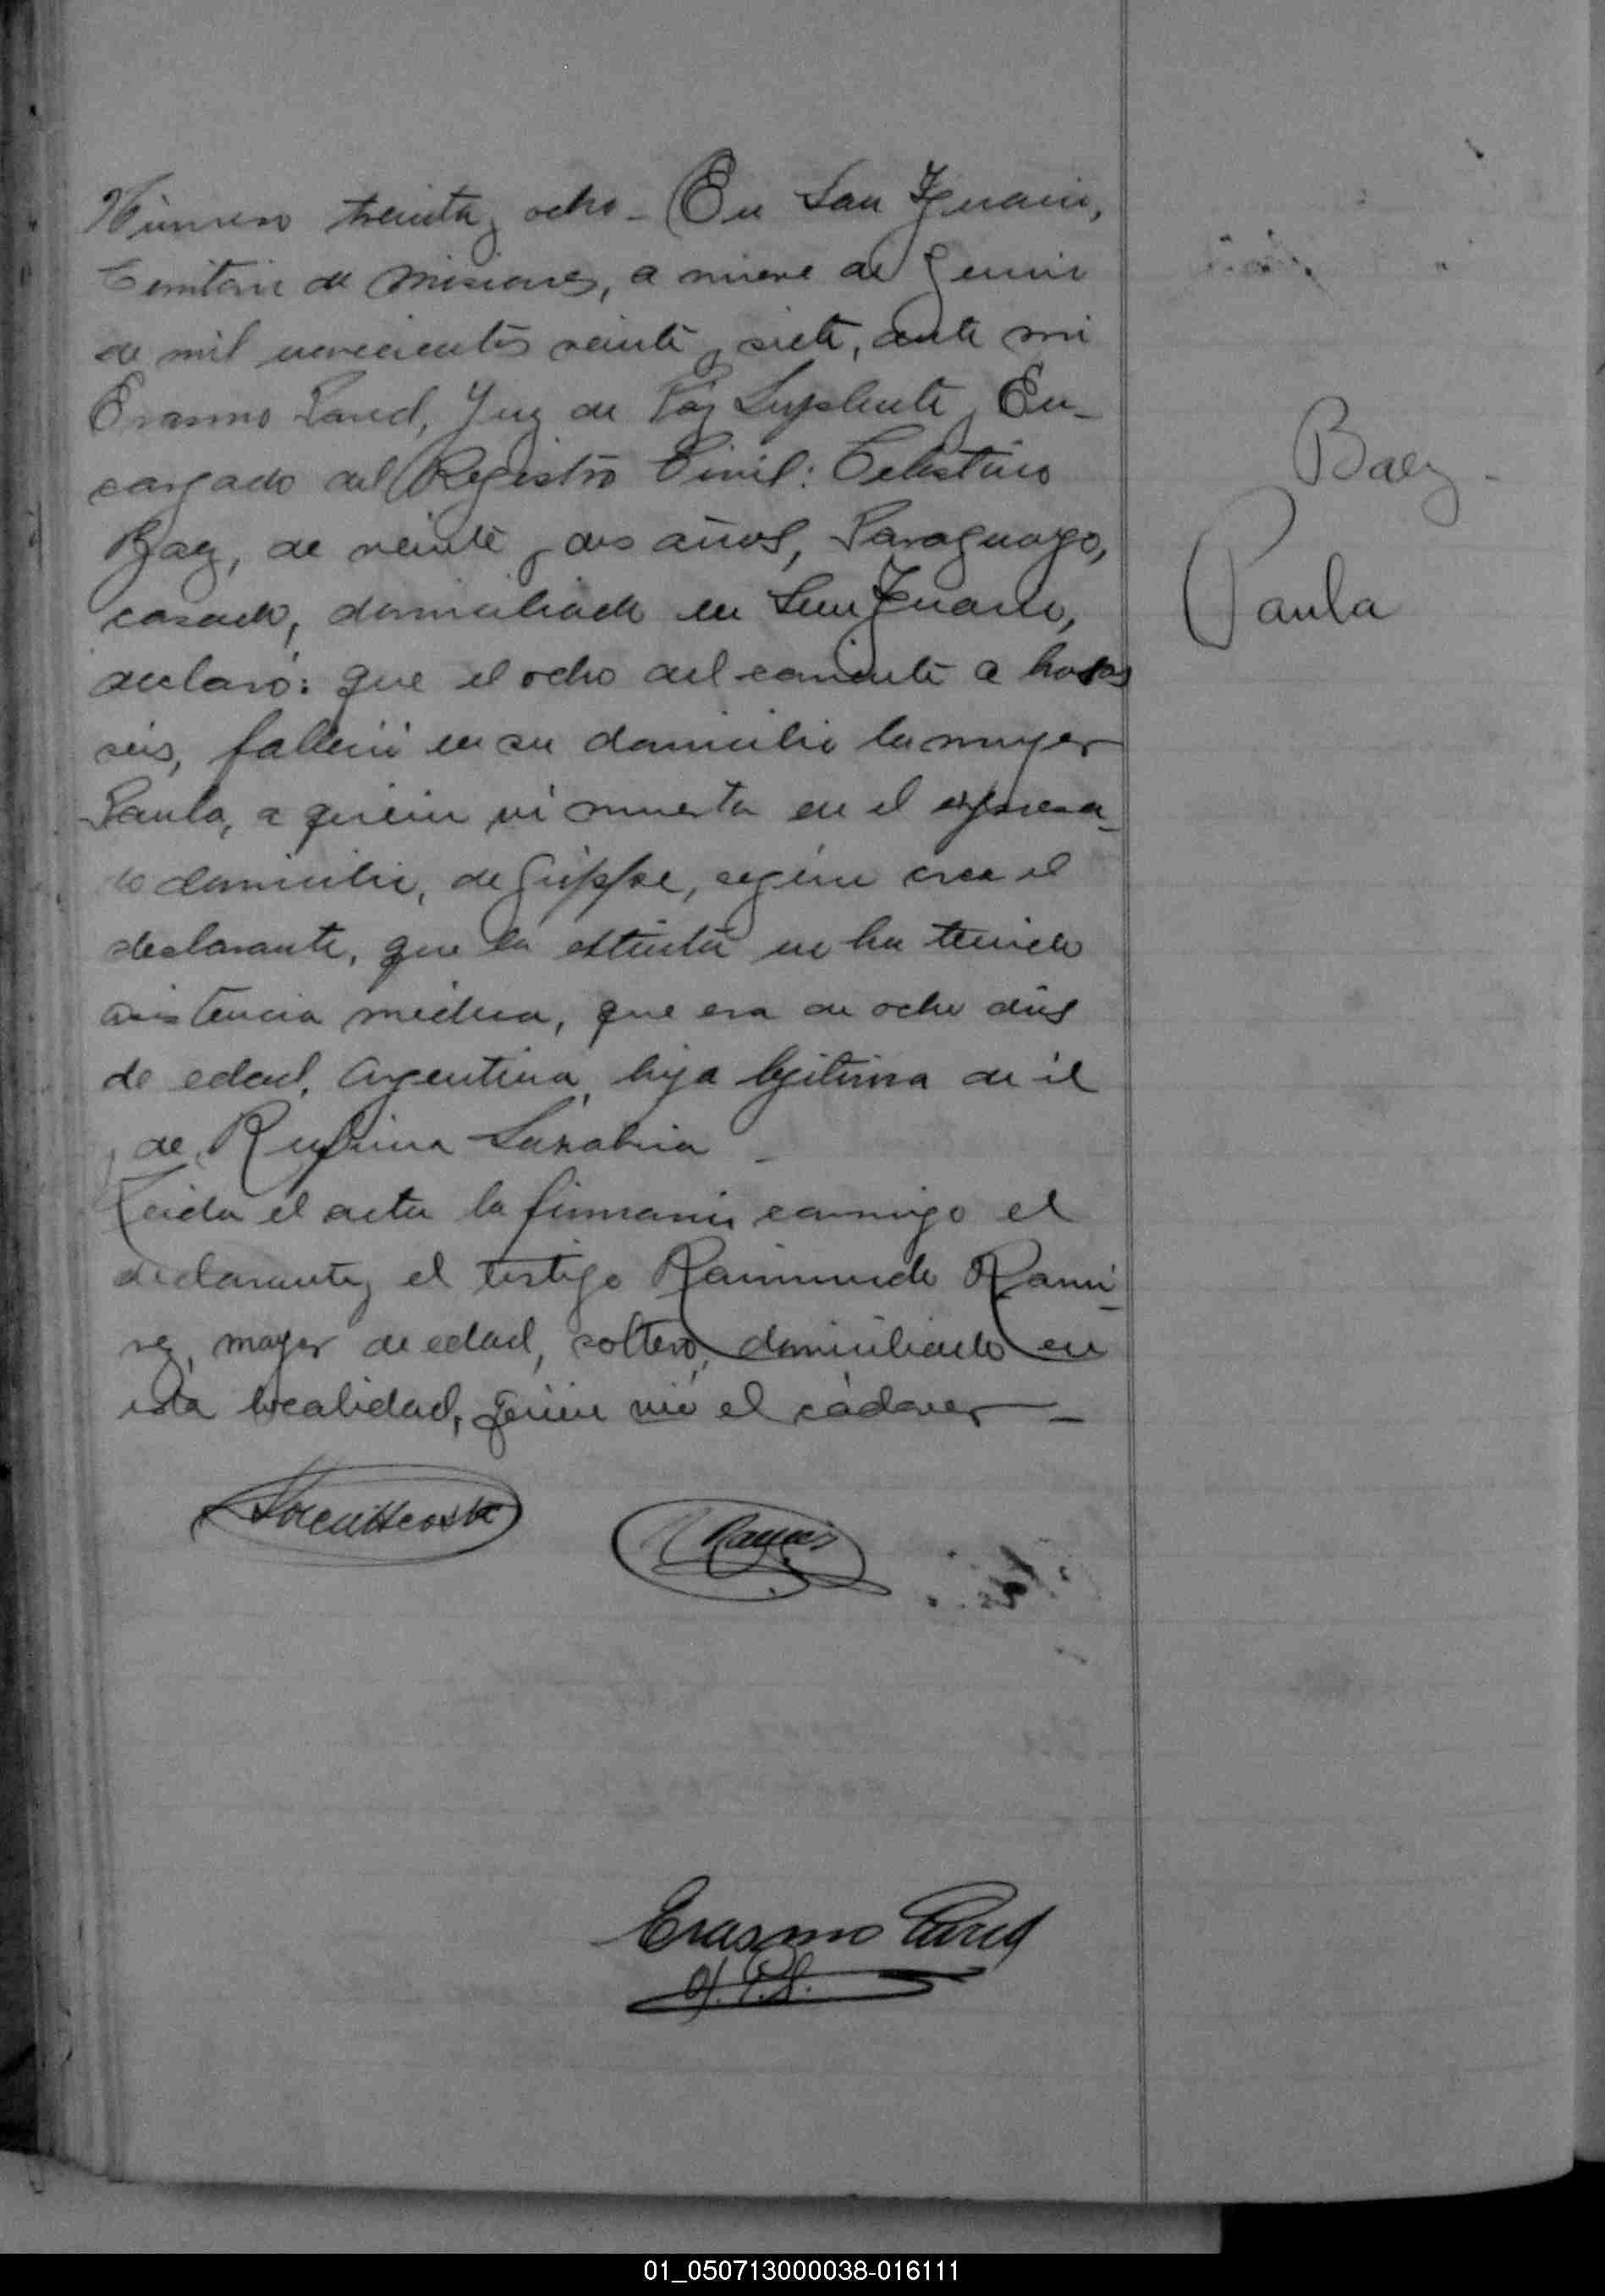 Número treinta y ocho - En San Ignacio,
Territorio de Misiones, a nueve de Junio
de mil novecientos veinte y siete, ante mi
Erasmo Pared, Juez de Paz Suplente, En-
cargado del Registro Civil: Celestino
Baez, de veinte y dos años, Paraguayo,
casado, domiciliado en San Ignacio,
declaró: que el ocho del corriente a horas
seis, falleció en su domicilio la mujer
Paula, a quien vi muerta en el expresa-
do domicilio, de Grippe, según cree el
declarante, que la extinta no ha tenido
asistencia médica, que era de ocho dias
de edad, Argentina, hija legitima de él
y de Rufina Sanabria -
Leida el acta la firmaron conmigo el
declarante y el testigo Raimundo Rami-
rez, mayor de edad, soltero, domiciliado en
esta localidad, quien vió el cádaver -
Baez -
Paula
Erasmo Pared
J.P.S.
01_050713000038-016111